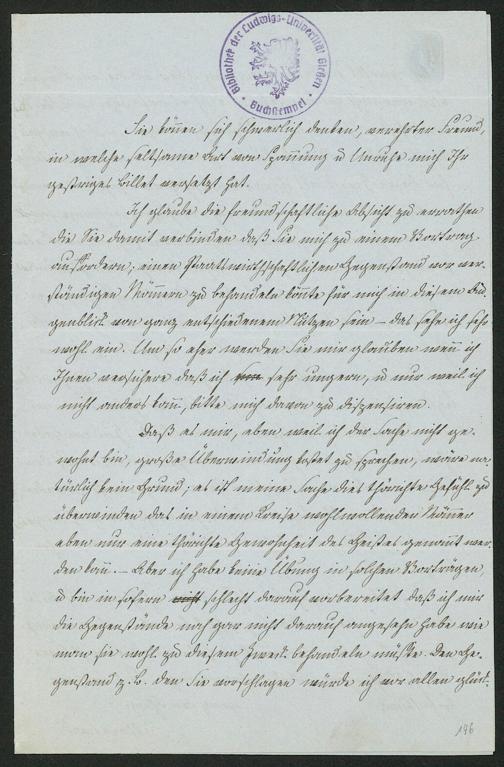 Bibliothek der Ludwigs-Universität Gießen
Buchstempel
Sie können sich schwerlich denken, verehrter Freund,
in welche seltsame Art von Spannung u Unruhe mich Ihr
gestriges Billet versetzt hat.
Ich glaube die freundschaftliche Absicht zu errathen
die Sie damit verbinden daß Sie mich zu einem Vortrag
auffordern; einen staatswirthschaftlichen Gegenstand vor ver-
ständigen Männern zu behandeln könnte für mich in diesem Au-
genblick von ganz entschiedenem Nutzen sein – das sehe ich sehr
wohl ein. Um so eher werden Sie mir glauben wenn ich
Ihnen versichere daß ich sehr ungern, u nur weil ich
nicht anders kann, bitte mich davon zu dispensiren.
Daß es mir, eben weil ich der Sache nicht ge-
wohnt bin, große Überwindung kostet zu sprechen, wäre na-
türlich kein Grund; es ist meine Sache dies thörichte Gefühl zu
überwinden das in einem Kreise wohlwollender Männer
eben nur eine thörichte Gewohnheit des Geistes genannt wer-
den kann. – Aber ich habe keine Übung in solchen Vorträgen,
u bin in sofern schlecht darauf vorbereitet daß ich mir
die Gegenstände noch gar nicht darauf angesehn habe wie
man sie wohl zu diesem Zweck behandeln müßte. Den Ge-
genstand z. B. den Sie vorschlagen würde ich vor allen glück-
146